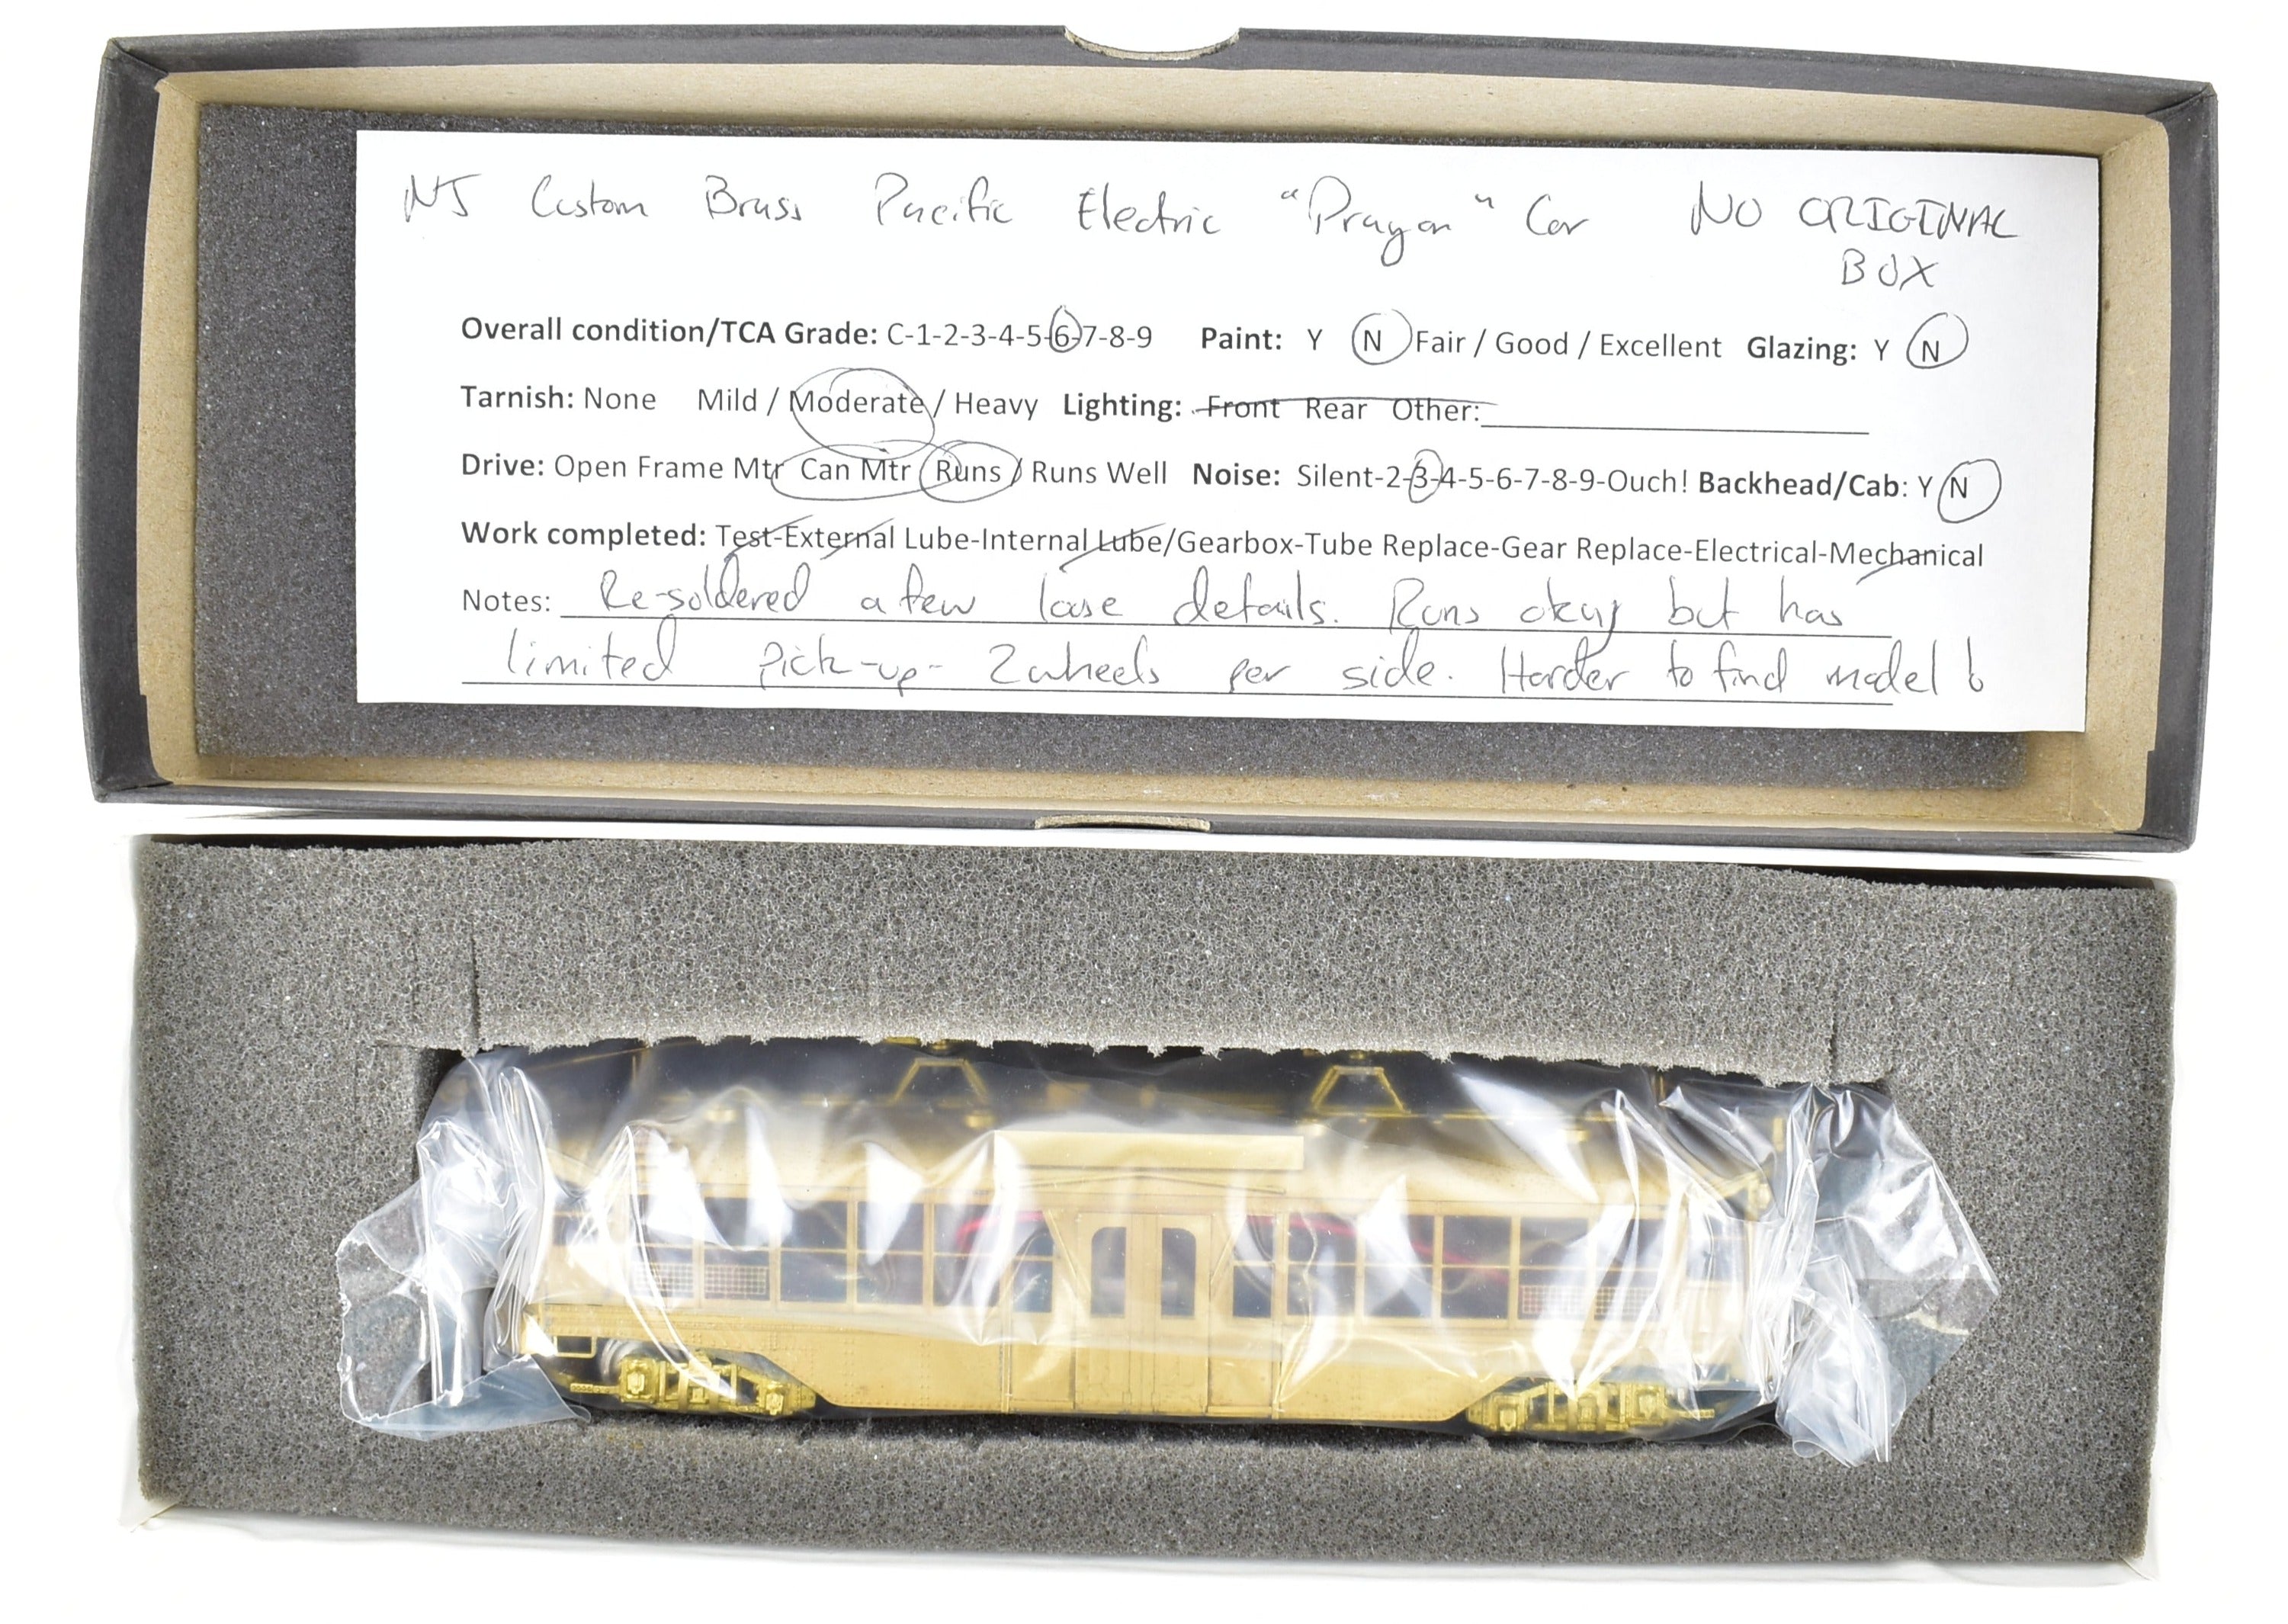 NJ Custom Brass Pacific Electric "Prayon" Car NO ORIGINAL
BOX
Overall condition/TCA Grade: C-1-2-3-4-5-6-7-8-9 Paint: Y N Fair / Good / Excellent Glazing: Y N
Tarnish: None Mild / Moderate / Heavy Lighting: Front Rear Other:
Drive: Open Frame Mtr Can Mtr Runs / Runs Well Noise: Silent-2-3-4-5-6-7-8-9-Ouch! Backhead/Cab: Y N
Work completed: Test-External Lube-Internal Lube/Gearbox-Tube Replace-Gear Replace-Electrical-Mechanical
Notes: Re-soldered a few loose details. Runs okay but has
limited pick-up- 2 wheels per side. Harder to find model